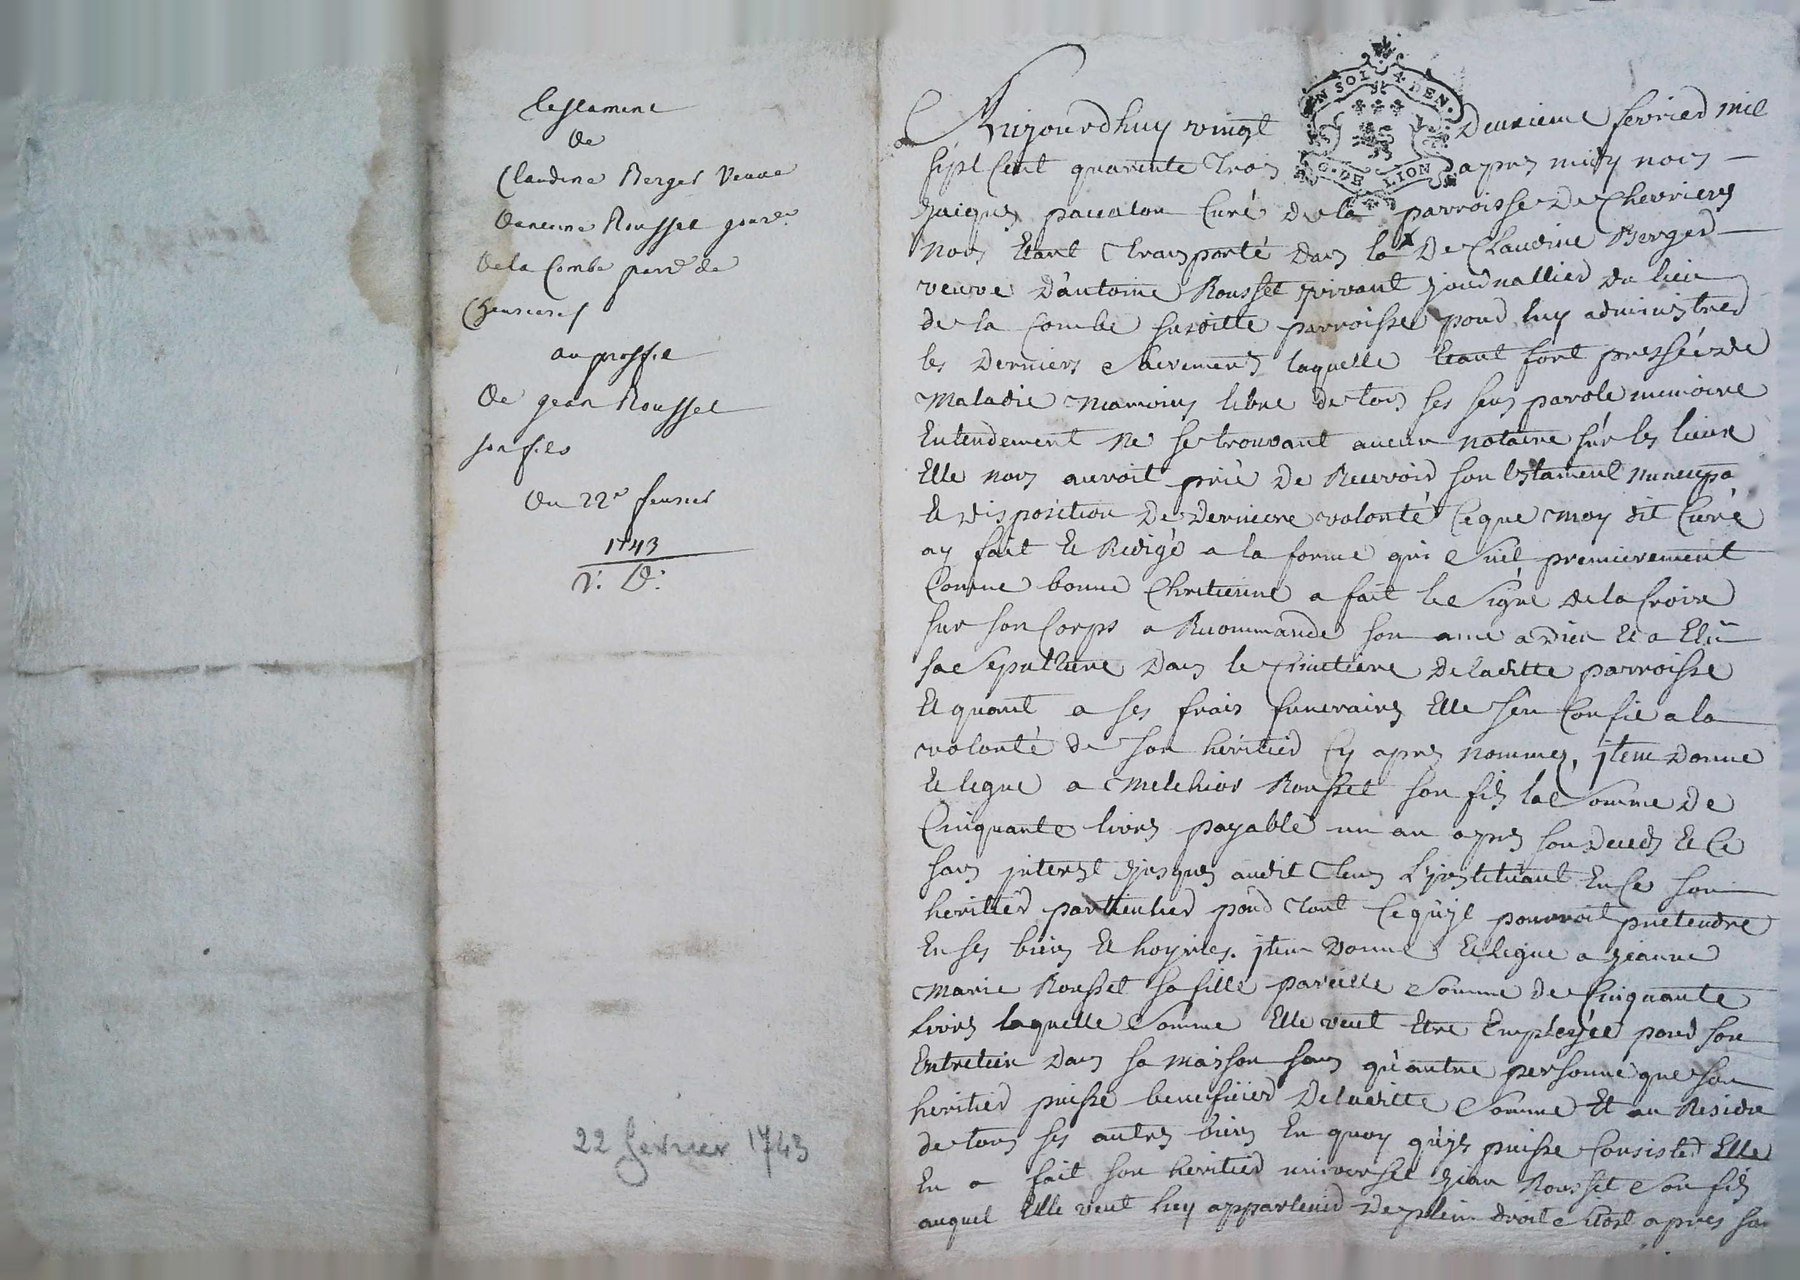 testament
de
Claudine Berger veuve
dantoine Rousset jour.er
dela Combe parr.e de
Chevrieres
au proffit
de jean Rousset
son fils
du 22e fevrier
1743
22 février 1743
UN SOL 4 DEN.
G. DE LION
Aujourdhuy vingt deuxieme fevrier mil
sept cent quarente trois apres midy nous
jacques paccalon curé de la parroisse de Chevrieres
nous etant transporté dans la x de Claudine Berger
veuve d'antoine Rousset vivant journallier du lieu
de la Combe susditte parroisse pour luy administrer
les derniers sacrements laquelle etant fort pressée de
maladie manmoins libre de tous ses sens parole memoire
Entendement ne se trouvant aucun notaire sur les lieux
Elle nous auroit prié de Recevoir son testament nuncupa
et disposition de derniere volonté ce que moy dit curé
ay fait et Redigé a la forme qui suit premierement
Comme bonne Chretienne a fait le signe de la Croix
sur son Corps a Recommandé son ame a dieu et a Elû
sa sepulture dans le cimetiere de laditte parroisse
Et quant a ses frais funeraires Elle s'en Confie a la
volonté de son heritier cy apres nommez, jtem donne
et legue a melchior Rousset son fils la somme de
Cinquante livres payable un an apres son deceds et ce
sans jnterest jusques audit tems L'jnstituant En ce son
heritier particulier pour tout ce qu'jl pourroit pretendre
En ses biens et hoyries. jtem donne et legue a jeanne
marie Rousset sa fille pareille somme de Cinquante
livres laquelle somme Elle veut Etre Employée pour son
Entretien dans sa maison sans qu'autre personne que son
heritier puisse beneficier de laditte somme Et au Residu
de tous ses autres biens En quoy qu'jls puisse Consister Elle
En a fait son heritier universel jean Rousset son fils
auquel Elle veut luy appartenir de plein droit sitost apres son